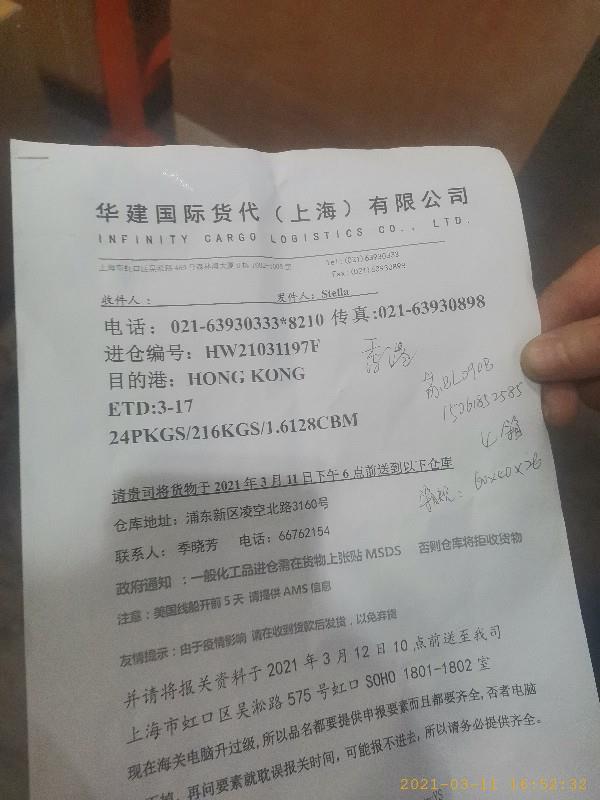 华建国际货代（上海）有限公司
INFINITY CARGO LOGISTICS CO., LTD.
Tel:(021)63930333
Fax:(021)63930898
收件人：
发件人：Stella
电话：021-63930333*8210 传真:021-63930898
进仓编号：HW21031197F
目的港：HONG KONG
ETD:3-17
24PKGS/216KGS/1.6128CBM
15261852585
60x40x28
请贵司将货物于2021年3月11日下午6点前送到以下仓库
仓库地址：浦东新区凌空北路3160号
联系人：季晓芳 电话：66762154
政府通知：一般化工品进仓需在货物上张贴MSDS 否则仓库将拒收货物
注意：美国线船开前5天 请提供AMS信息
友情提示：由于疫情影响 请在收到货款后发货，以免弃货
并请将报关资料于2021年3月12日10点前送至我司
上海市虹口区吴淞路575号虹口SOHO 1801-1802室
现在海关电脑升过级,所以品名都要提供申报要素而且都要齐全,否者电脑
再问要素就耽误报关时间，可能报不进去,所以请务必提供齐全。
2021-03-11 16:52:32